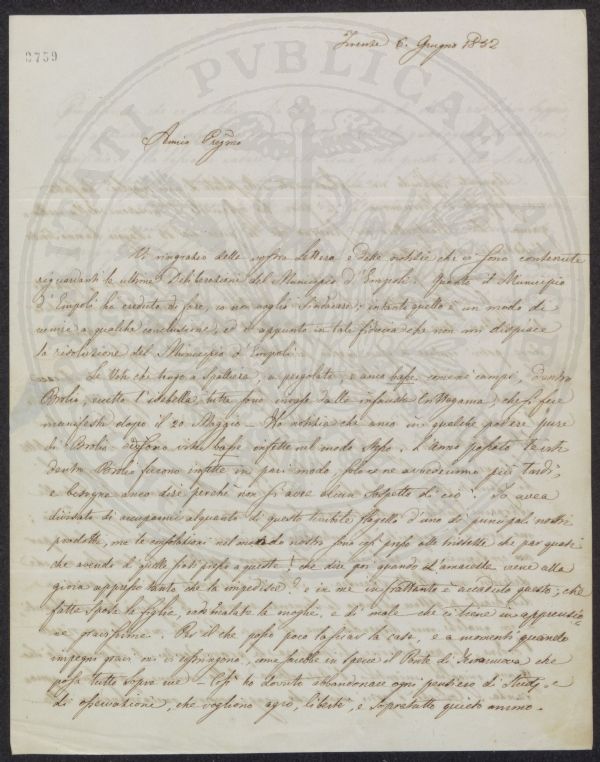 Firenze 6. Giugno 1852
2759
Amico Pregmo
Vi ringrazio della vostra lettera e delle notizie che ci sono contenute
riguardanti le ultime Deliberazioni del Municipio d'Empoli. Quanto il Municipio
d'Empoli ha creduto di fare, io non voglio sindacare; intanto quello è un modo di
venire a qualche conclusione, ed è appunto in tale fiducia che non mi dispiace
la risoluzione del Municipio d'Empoli.
Le Viti che tengo a spalliera, a pergolato, e anco basse, come ai campi, dentro
Brolio, eccetto l'isabella, tutte sono invase dalla infausta Crittogama, che si fece
manifesta dopo il 20 Maggio. Ho notizia che anco in qualche podere pure
di Brolio sono viti basse infette nel modo stesso. L'anno passato le viti
dentro Brolio furono infette in pari modo, solo ce ne avvedemmo più tardi,
e bisogna anco dire perché non si avea alcun sospetto di ciò. Io avea
divisato di occuparmi alquanto di questo terribile flagello d'uno dei principali nostri
prodotti, ma le consolazioni nel mondo nostro sono così presso alle tristezze che par quasi
che avendo di quelle siasi presso a queste! che dire poi quando l'amarezza viene alla
gioia appresso tanto, che la impedisce? e in me in frattanto è accaduto questo; che
fatta sposa la figlia, cadde malata la moglie, e di male che ci tiene in apprensio=
ne gravissima. Per il che posso poco lasciar la casa, e a momenti quando
impegni gravi mi ci costringono, come sarebbe in specie il Ponte di Terranuova che
posa tutto sopra me. Così ho dovuto abbandonare ogni pensiero di Studj, e
di osservazione, che vogliono agio, libertà, e sopratutto quieto animo.
PUBLICAE